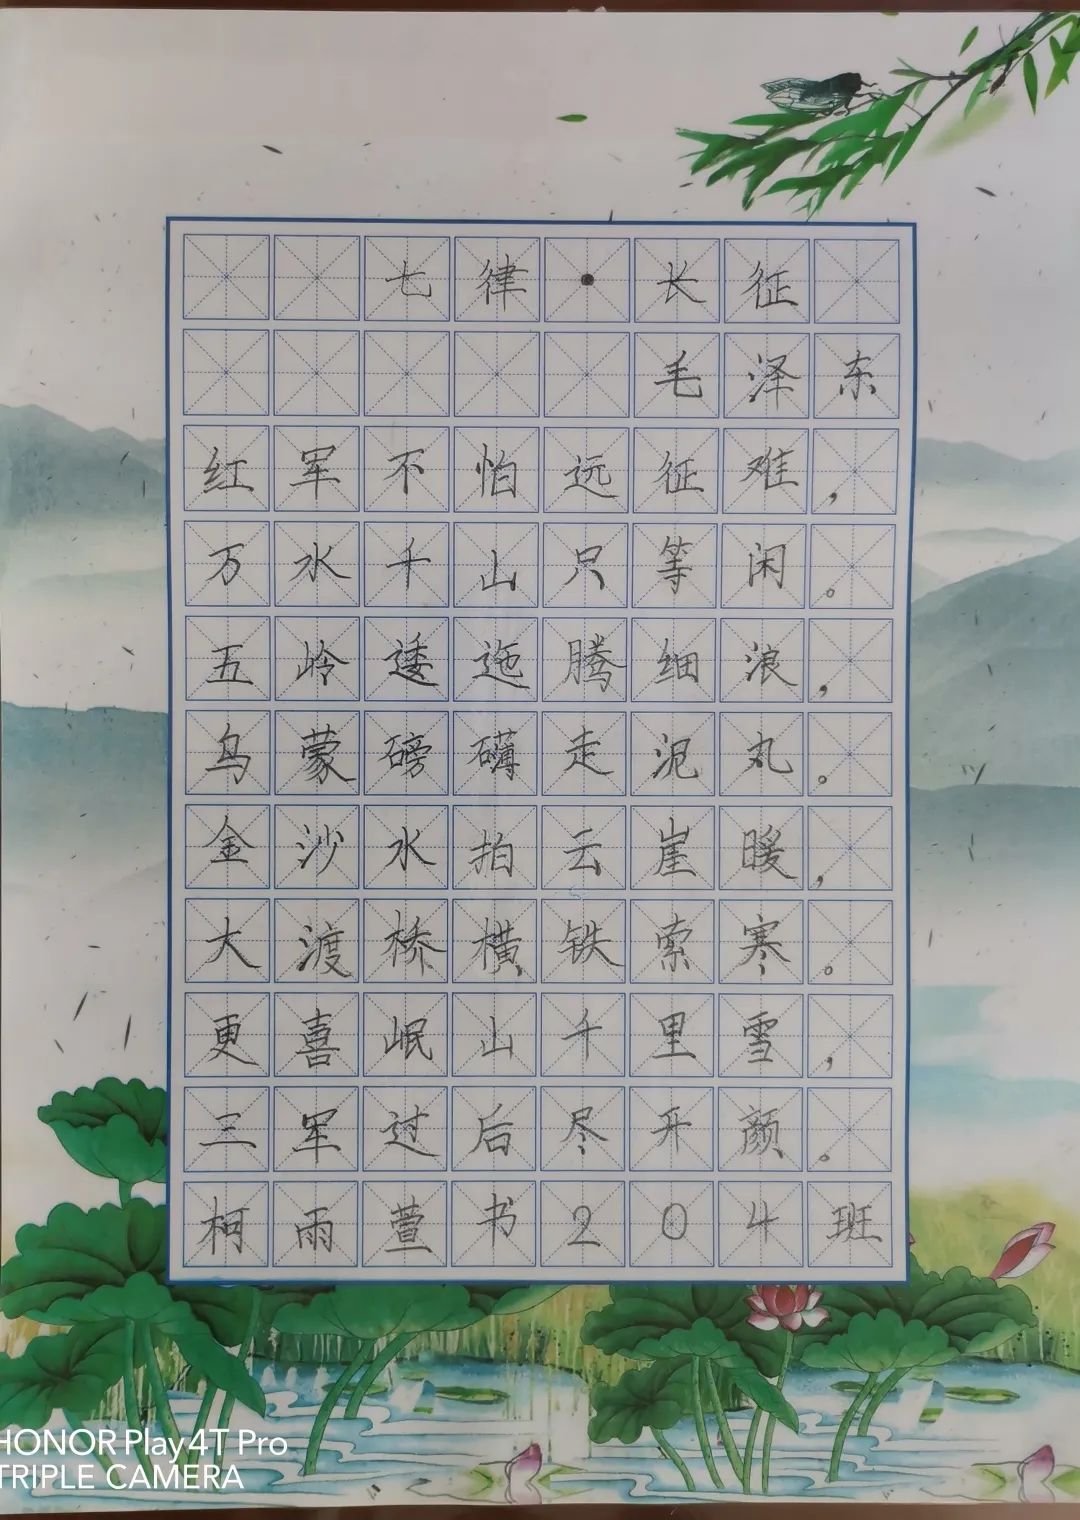 七律·长征
毛泽东
红军不怕远征难，
万水千山只等闲。
五岭逶迤腾细浪，
乌蒙磅礴走泥丸。
金沙水拍云崖暖，
大渡桥横铁索寒。
更喜岷山千里雪，
三军过后尽开颜。
柯雨萱书204班
HONOR Play4T Pro
TRIPLE CAMERA